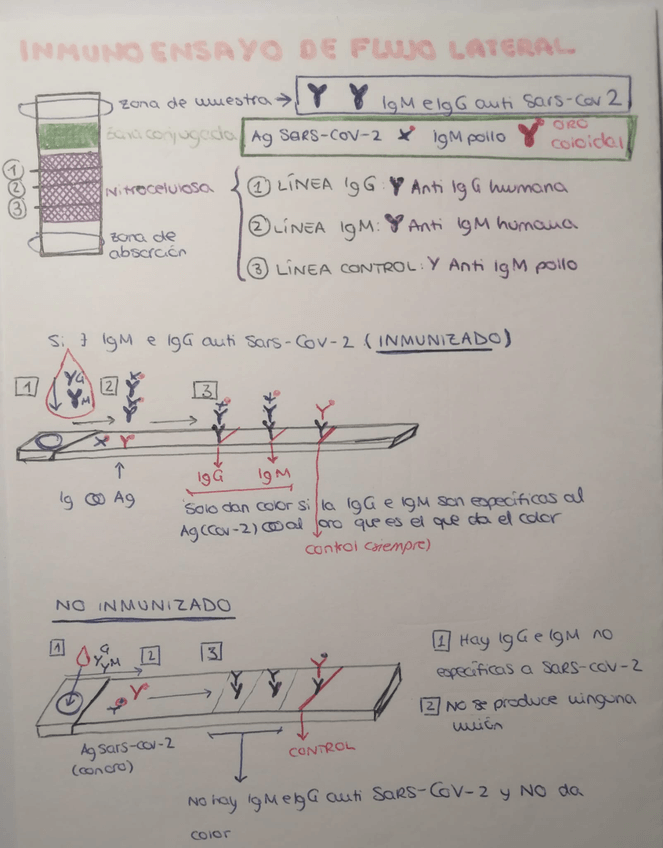 INMUNOENSAYO DE FLUJO LATERAL.
zona de muestra → IgM e IgG anti Sars-Cov 2
Zona conjugada Ag SARS-COV-2 IgM pollo ORO
coloidal
1 Nitrocelulosa 1 LÍNEA IgG: Anti IgG humana
2 2 LÍNEA IgM: Anti IgM humana
3 3 LÍNEA CONTROL: Anti IgM pollo
zona de
absorción
Si ∃ IgM e IgG anti Sars-Cov-2 (INMUNIZADO)
1 G M 2 3
IgG IgM
Ig Ag
Solo dan color si la IgG e IgM son específicas al
Ag(Cov-2) al oro que es el que da el color
control (siempre)
NO INMUNIZADO
1 G M 2 3
1 Hay IgG e IgM no
específicas a SARS-COV-2
2 No se produce ninguna
unión
Ag Sars-cov-2
(con oro)
CONTROL
No hay IgM e IgG anti SARS-COV-2 y NO da
color